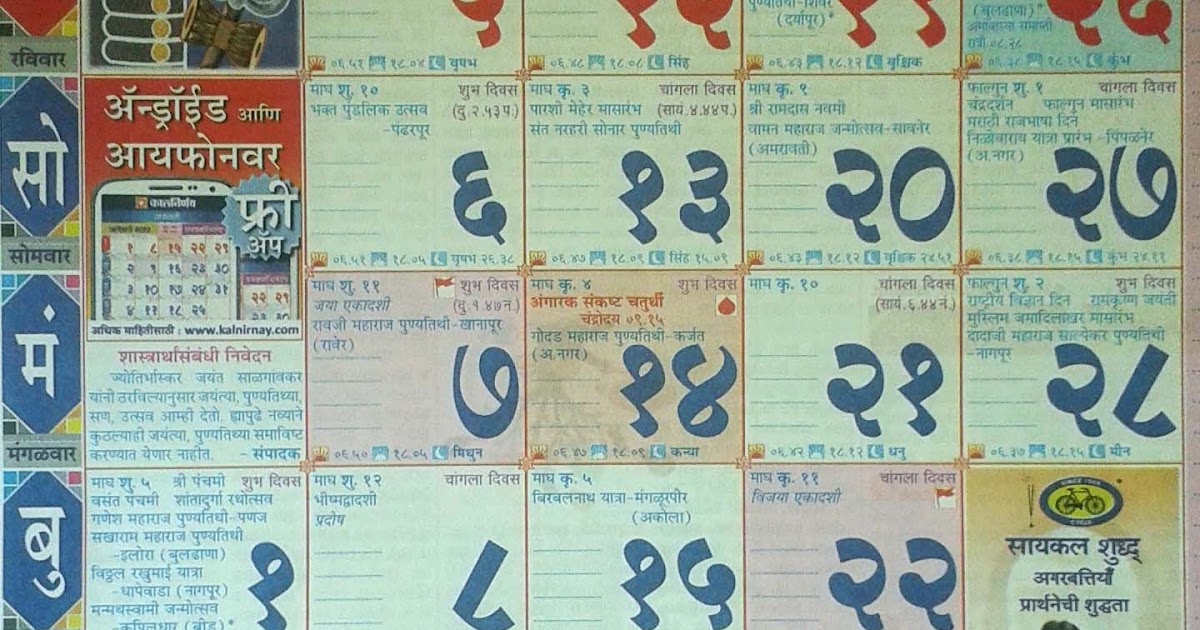 रविवार
०६.५१ १८.०४ वृषभ
०६.४८ १८.०८ सिंह
पुण्यतिथी-शिवर
(दर्यापूर)*
०६.४३ १८.१२ वृश्चिक
(बुलढाणा)*
अमावास्या समाप्ती
रात्री ०८.२८
०६.३८ १८.१५ कुंभ
५
१२
१९
२६
सो
सोमवार
ॲन्ड्रॉईड आणि
आयफोनवर
कालनिर्णय
फ्री
अॅप
अधिक माहितीसाठी : www.kalnirnay.com
माघ शु. १० शुभ दिवस
भक्त पुंडलिक उत्सव (दु.२.५३प.)
-पंढरपूर
६
०६.५१ १८.०५ वृषभ २६.३८
माघ कृ. ३ चांगला दिवस
पारशी मेहेर मासारंभ (सायं.४.४४प.)
संत नरहरी सोनार पुण्यतिथी
१३
०६.४७ १८.०९ सिंह १५.०९
माघ कृ. ९
श्री रामदास नवमी
वामन महाराज जन्मोत्सव-सावनेर
(अमरावती)
२०
०६.४३ १८.१२ वृश्चिक २४.५१
फाल्गुन शु. १ चांगला दिवस
चंद्रदर्शन फाल्गुन मासारंभ
मराठी राजभाषा दिन
निळोबाराय यात्रा प्रारंभ -पिंपळनेर
(अ.नगर)
२७
०६.३८ १८.१५ कुंभ २४.११
मं
मंगळवार
शास्त्रार्थासंबंधी निवेदन
ज्योतिर्भास्कर जयंत साळगांवकर
यांनी ठरविल्यानुसार जयंत्या, पुण्यतिथ्या,
सण, उत्सव आम्ही देतो. ह्यापुढे नव्याने
कुठल्याही जयंत्या, पुण्यतिथ्या समाविष्ट
करण्यात येणार नाहीत. - संपादक
माघ शु. ११ शुभ दिवस
जया एकादशी (दु.१.४७नं.)
रावजी महाराज पुण्यतिथी-खानापूर
(रावेर)
७
०६.५० १८.०५ मिथुन
माघ कृ. ४ शुभ दिवस
अंगारक संकष्ट चतुर्थी
चंद्रोदय ०९.१५
गोदड महाराज पुण्यतिथी-कर्जत
(अ.नगर)
१४
०६.४७ १८.०९ कन्या
माघ कृ. १० चांगला दिवस
(सायं.६.४४नं.)
२१
०६.४२ १८.१२ धनु
फाल्गुन शु. २ शुभ दिवस
राष्ट्रीय विज्ञान दिन रामकृष्ण जयंती
मुस्लिम जमादिलाखर मासारंभ
दादाजी महाराज साल्पेकर पुण्यतिथी
-नागपूर
२८
०६.३७ १८.१५ मीन
बु
माघ शु. ५ श्री पंचमी शुभ दिवस
वसंत पंचमी शांतादुर्गा रथोत्सव
गणेश महाराज पुण्यतिथी-पणज
सखाराम महाराज पुण्यतिथी
-इलोरा (बुलढाणा)
विठ्ठल रखुमाई यात्रा
-धापेवाडा (नागपूर)
मन्मथस्वामी जन्मोत्सव
-कपिलधार (बीड)*
१
माघ शु. १२ चांगला दिवस
भीष्मद्वादशी
प्रदोष
८
माघ कृ. ५
बिरबलनाथ यात्रा-मंगळूरपीर
(अकोला)
१५
माघ कृ. ११ चांगला दिवस
विजया एकादशी
२२
SINCE 1948
CYCLE
सायकल शुद्ध
अगरबत्तियाँ
प्रार्थनेची शुद्धता